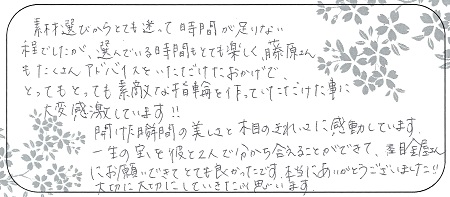 素材選びからとても迷って時間が足りない
程でしたが、選んでいる時間もとても楽しく、藤原さん
もたくさんアドバイスをいただけたおかげで、
とってもとっても素敵な指輪を作っていただけた事に
大変感激しています!!
開けた瞬間の美しさと木目のきれいさに感動しています。
一生の宝を彼と2人で分かち合えることができて、杢目金屋さん
にお願いできてとても良かったです。本当にありがとうございました!!
大切に大切にしていきたいと思います。